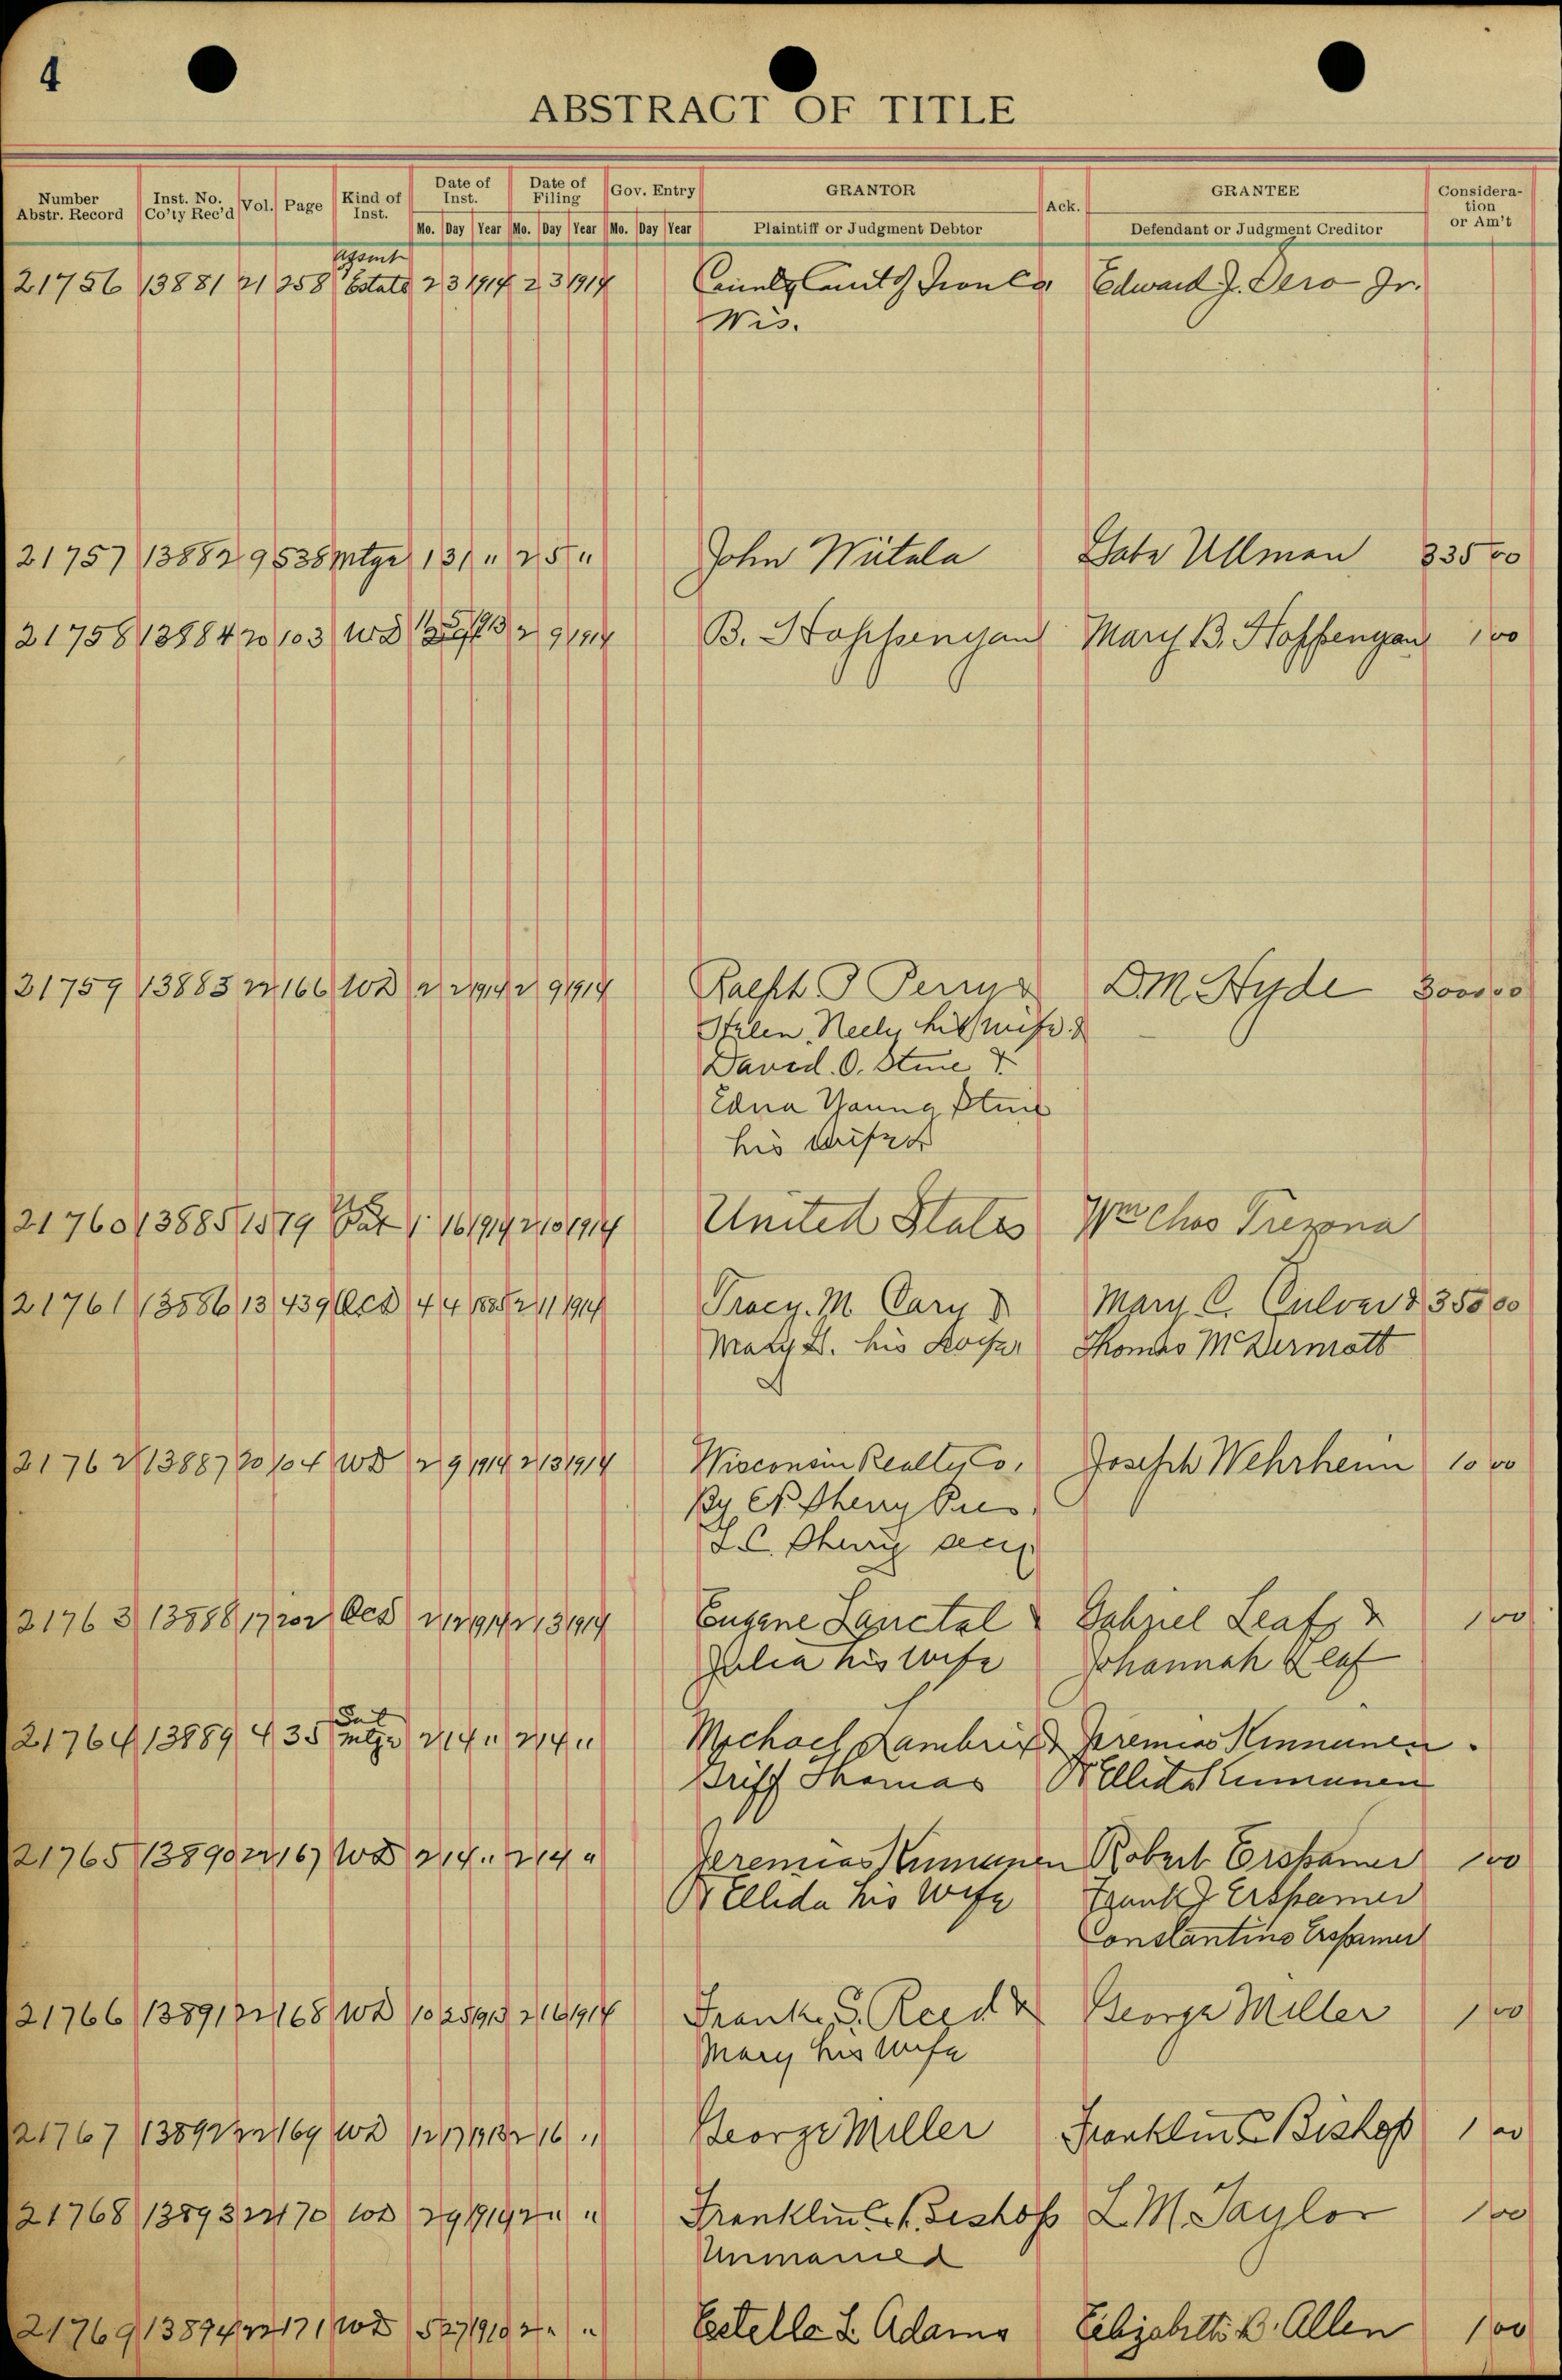 4
ABSTRACT OF TITLE
Number Abstr. Record Inst. No. Co'ty Rec'd Vol. Page Kind of Inst. Date of Inst. Date of Filing Gov. Entry GRANTOR Ack. GRANTEE Consideration or Am't
Mo. Day Year Mo. Day Year Mo. Day Year Plaintiff or Judgment Debtor Defendant or Judgment Creditor
21756 13881 21 258 Estate 2 3 1914 2 3 1914 Edward J. Dero Jr.
Wis.
21757 13882 9 538 Mtge 1 31 " 2 5 " John Wiitala Gabe Ullman 335 00
21758 13884 20 103 WD 2 9 1914 B. Hoppenyan Mary B. Hoppenyan 1 00
21759 13883 22 166 WD 2 2 1914 2 9 1914 Ralph J Perry & D.M. Hyde 3000 00
Helen Neely his wife &
David. O. Stine &
Edna Young Stine
his wife
21760 13885 15 79 Pat 1 16 1914 2 10 1914 United States Wm Chas Trezona
21761 13886 13 439 QCD 4 4 1885 2 11 1914 Tracy. M. Cary & Mary C. Culver & 350 00
Mary L. his wife Thomas McDermott
21762 13887 20 104 WD 2 9 1914 2 13 1914 Wisconsin Realty Co. Joseph Wehrheim 10 00
By Sherry Pres.
Sherry secy
21763 13888 17 202 QCD 2 12 1914 2 13 1914 Eugene Lanctal & Gabriel Leaf & 1 00
Julia his wife Johannah Leaf
21764 13889 4 35 Sat Mtge 2 14 " 2 14 " Michael Lambrix & Jeremias Kinnunen
Griff Thomas Ellida Kinnunen
21765 13890 22 167 WD 2 14 " 2 14 " Jeremias Kinnunen Robert Erspamer 1 00
& Ellida his wife Frank J Erspamer
Constantino Erspamer
21766 13891 22 168 WD 10 25 1913 2 16 1914 Frank. S. Reed & George Miller 1 00
Mary his wife
21767 13892 22 169 WD 12 17 1913 2 16 " George Miller Franklin C Bishop 1 00
21768 13893 22 170 WD 2 9 1914 2 " " Franklin C. Bishop L M. Taylor 1 00
Unmarried
21769 13894 22 171 WD 5 27 1910 2 " " Estelle L. Adams Elizabeth B. Allen 1 00